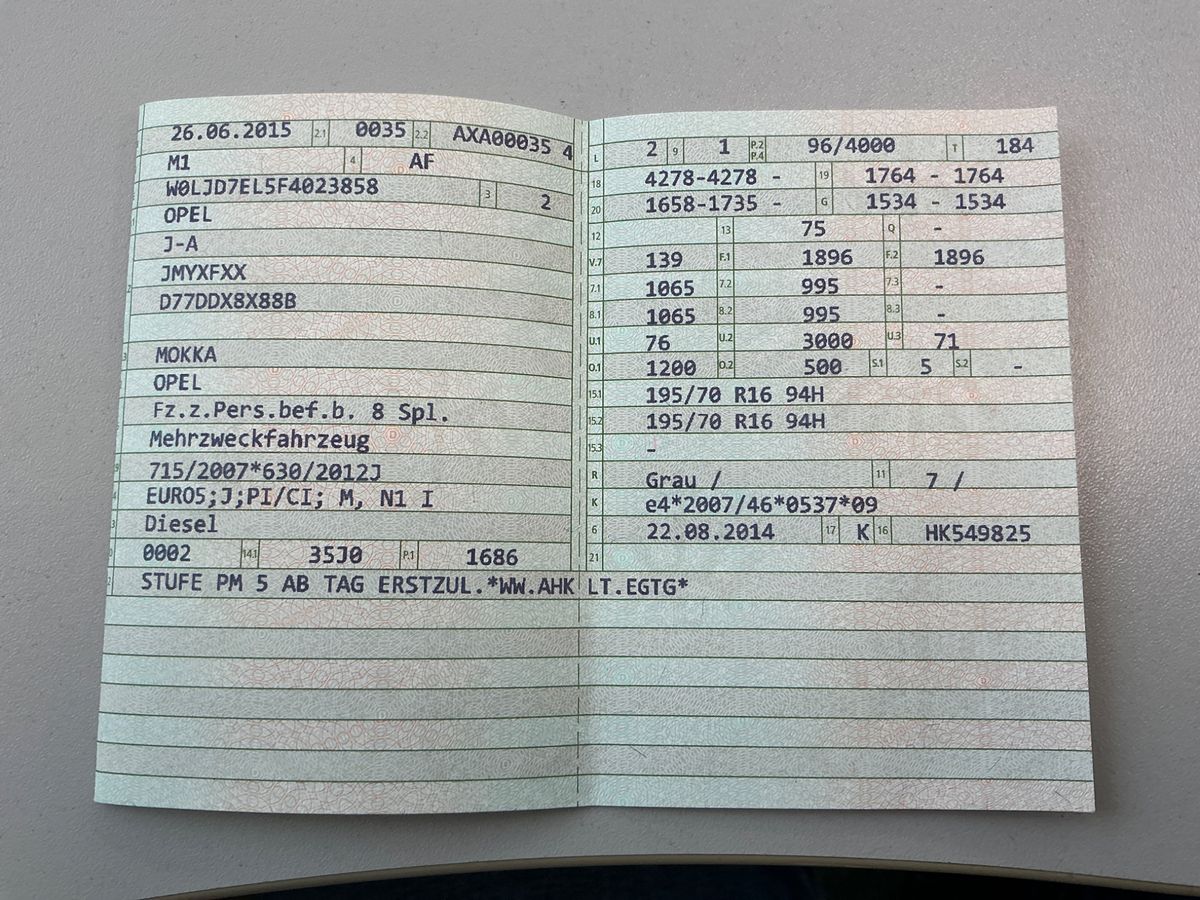 26.06.2015 2.1 0035 2.2 AXA00035 4
M1 4 AF
W0LJD7EL5F4023858 3 2
OPEL
J-A
JMYXFXX
D77DDX8X88B
MOKKA
OPEL
Fz.z.Pers.bef.b. 8 Spl.
Mehrzweckfahrzeug
715/2007*630/2012J
EURO5;J;PI/CI; M, N1 I
Diesel
0002 14.1 35J0 P.1 1686
L 2 9 1 P.2 P.4 96/4000 T 184
18 4278-4278 - 19 1764 - 1764
20 1658-1735 - G 1534 - 1534
12 13 75 Q -
V.7 139 F.1 1896 F.2 1896
7.1 1065 7.2 995 7.3 -
8.1 1065 8.2 995 8.3 -
U.1 76 U.2 3000 U.3 71
O.1 1200 O.2 500 S.1 5 S.2 -
15.1 195/70 R16 94H
15.2 195/70 R16 94H
15.3 -
R Grau / 11 7 /
K e4*2007/46*0537*09
6 22.08.2014 17 K 16 HK549825
21
STUFE PM 5 AB TAG ERSTZUL.*WW.AHK LT.EGTG*